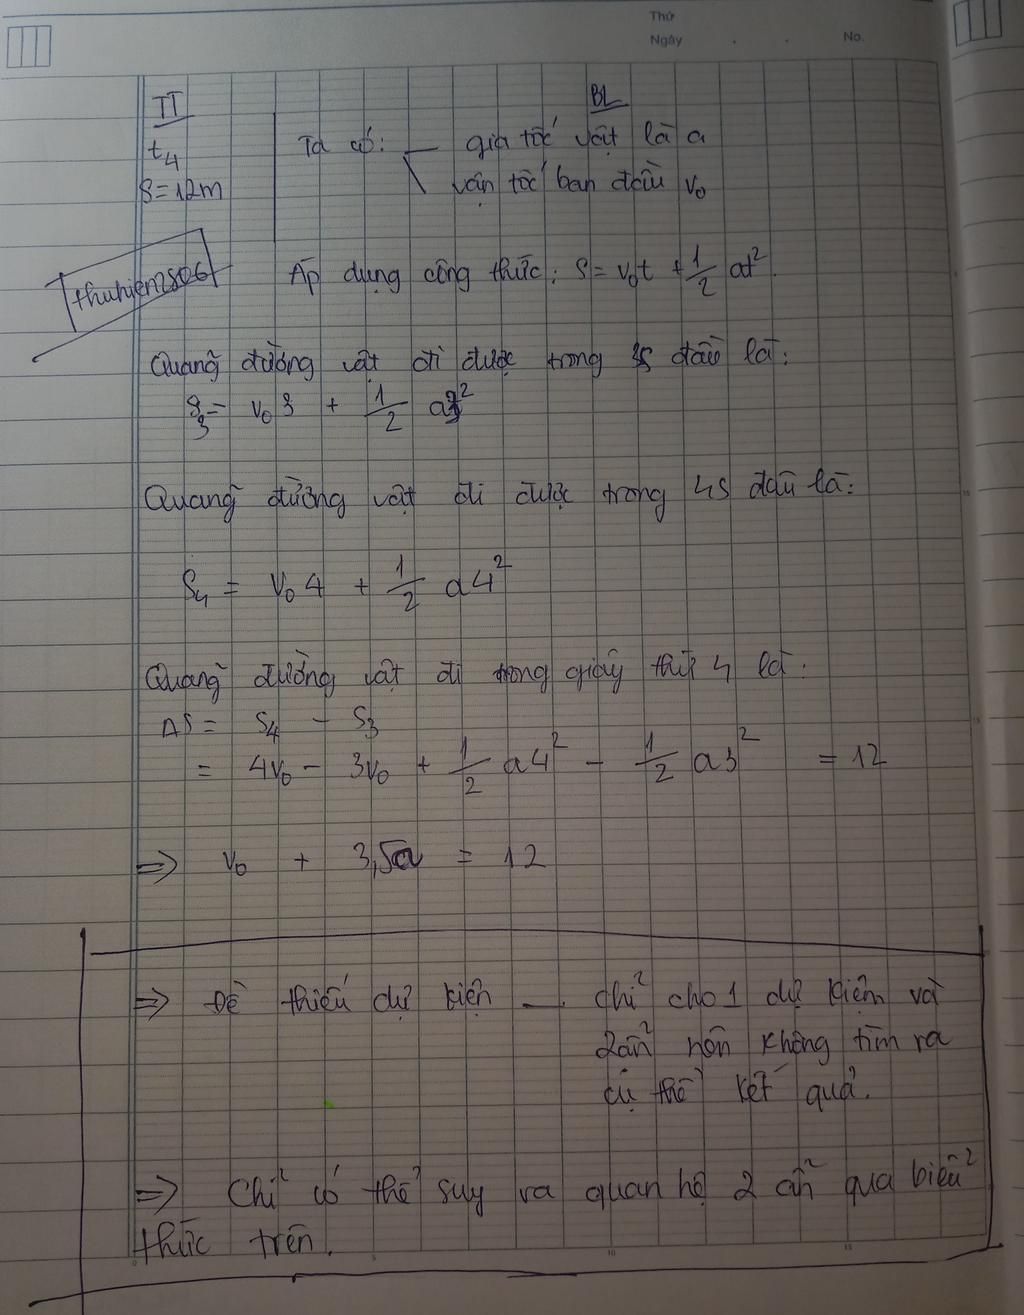 Thứ
Ngày . . No.
TT
BL
t4
S = 12m
Ta có: — gia tốc vật là a
\ vận tốc ban đầu v₀
thuhien2806
Áp dụng công thức: S = v₀t + 1/2 at²
Quãng đường vật đi được trong 3s đầu là:
S₃ = v₀3 + 1/2 a3²
Quãng đường vật đi được trong 4s đầu là:
S₄ = v₀4 + 1/2 a4²
Quãng đường vật đi trong giây thứ 4 là:
ΔS = S₄ - S₃
= 4v₀ - 3v₀ + 1/2 a4² - 1/2 a3² = 12
=> v₀ + 3,5a = 12
=> Đề thiếu dự kiện — chỉ cho 1 dự kiện và
2 ẩn nên không tìm ra
cụ thể kết quả.
=> Chỉ có thể suy ra quan hệ 2 ẩn qua biểu
thức trên.
0 5 10 15